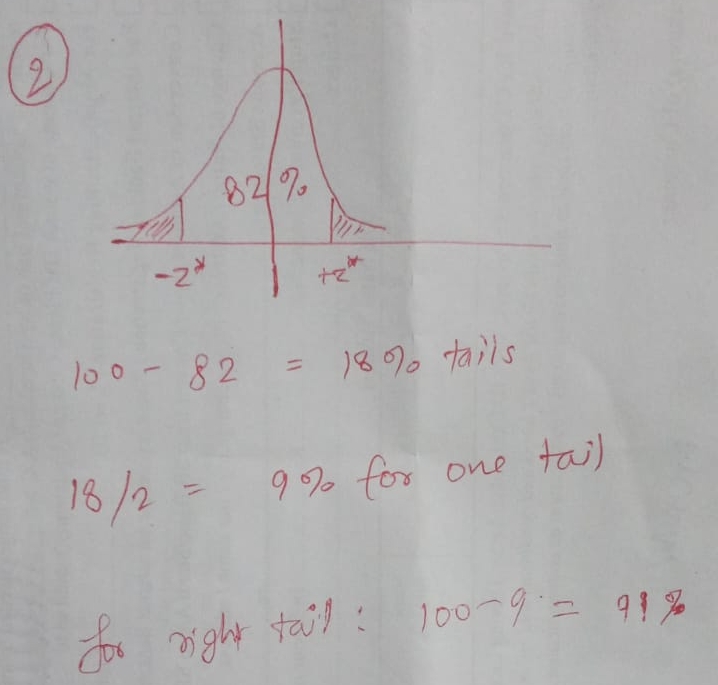 2
82%
-z* +z*
100 - 82 = 18% tails
18/2 = 9% for one tail
for right tail : 100-9 = 91%